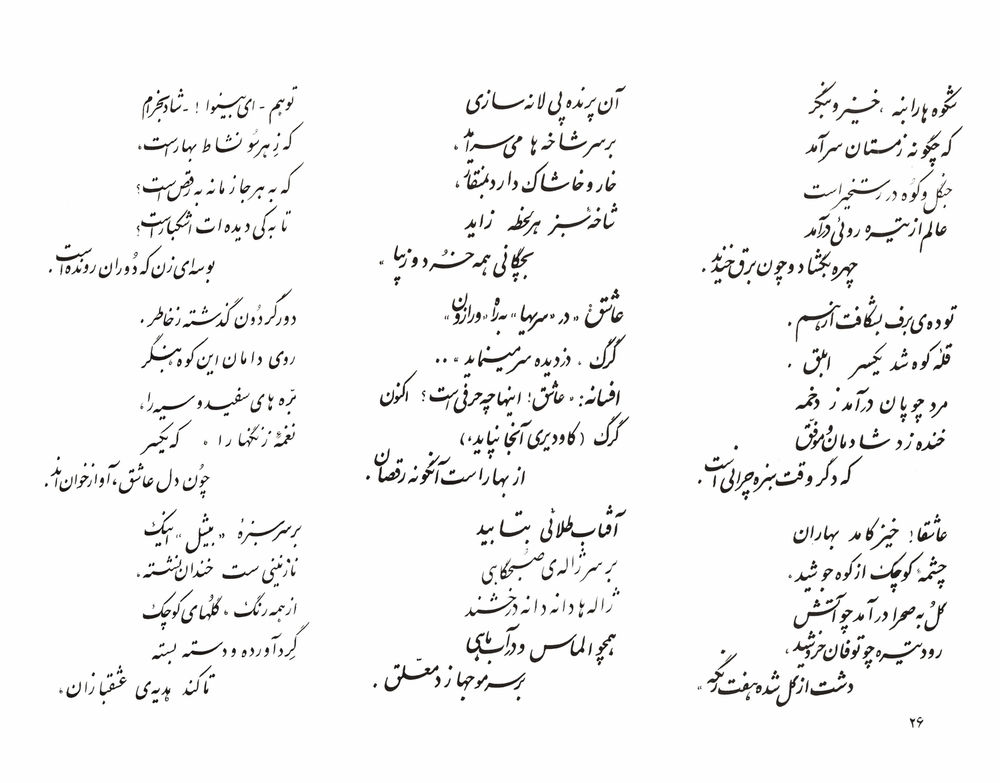 شکوه‌ها را بنه ، خیز و بنگر
که چگونه زمستان سرآمد
جنگل و کوه در رستخیز است
عالم از تیره روئی درآمد
چهره بگشاد و چون برق خندید .
توده‌ی برف بشکافت از هم .
قلهٔ کوه شد یکسر ابلق .
مرد چوپان درآمد ز دخمه
خنده زد شادمان و موفق
که دگر وقت سبزه چرانی است .
عاشقا ! خیز کامد بهاران
چشمهٔ کوچک از کوه جوشید ،
گل به صحرا درآمد چو آتش
رود تیره چو توفان خروشید ،
دشت از گل شده هفت رنگه "
آن پرنده پی لانه سازی
بر سر شاخه‌ها می‌سراید ،
خار و خاشاک دارد به منقار ،
شاخهٔ سبز هر لحظه زاید
بچگانی همه خرد و زیبا "
عاشق : « در «سریها» به راه «ورازون»
گرگ ، دزدیده سر مینماید » . .
افسانه : « عاشق ! اینها چه حرفی است ؟ اکنون
گرگ ( کاو دیری آنجا نپاید ، )
از بهار است آنگونه رقصان .
آفتاب طلائی بتابید
بر سر ژاله‌ی صبحگاهی
ژاله‌ها دانه دانه درخشند
همچو الماس و در آب ماهی
بر سر موجها زد معلق .
تو هم - ای بینوا ! - شاد بخرام
که ز هر سو نشاط بهار است ،
که به هر جا زمانه به رقص است ؟
تا به کی دیده‌ات اشکبار است ؟
بوسه‌ای زن که دوران رونده است .
دور گردون گذشته ز خاطر .
روی دامان این کوه بنگر
بره‌های سفید و سیه را ،
نغمهٔ زنگها را ، که یکسر
چون دل عاشق ، آواز خوان‌اند .
بر سر سبزهٔ « بیشل » اینک
نازنینی ست خندان نشسته ،
از همه رنگ ، گلهای کوچک
گرد آورده و دسته بسته
تا کند هدیه‌ی عشقبازان ،
۲۶